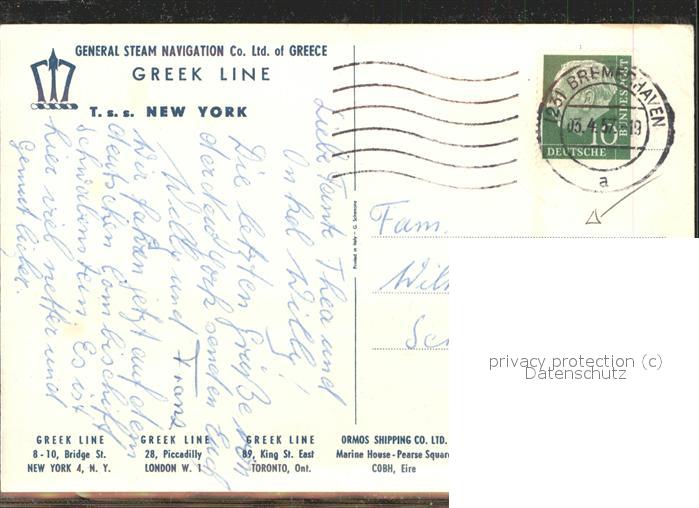 GENERAL STEAM NAVIGATION Co. Ltd. of GREECE
GREEK LINE
G.S.N.S.
T.s.s. NEW YORK
Liebe Tante Thea und
Onkel Willy!
Die letzten Grüße von
der New York senden Euch
Willy und Franz
Wir fahren jetzt auf dem
deutschen Combischiff
Schwabenstein. Es ist
hier viel netter und
gemütlicher.
Printed in Italy - G. Schenone
(23) BREMERHAVEN
03.4.57.19
a
10
DEUTSCHE
BUNDESPOST
Fam.
GREEK LINE
8-10, Bridge St.
NEW YORK 4, N. Y.
GREEK LINE
28, Piccadilly
LONDON W. 1
GREEK LINE
89, King St. East
TORONTO, Ont.
ORMOS SHIPPING CO. LTD.
Marine House - Pearse Squar
COBH, Eire
privacy protection (c)
Datenschutz